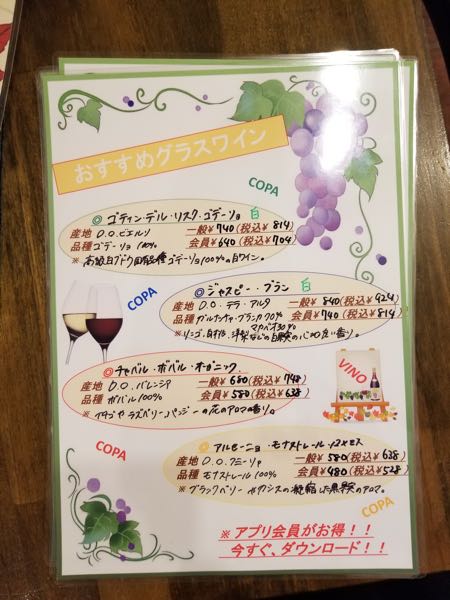 おすすめグラスワイン
COPA
◎ ゴディン・デル・リスク・ゴデーリョ 白
産地 D.O.ビエルソ 一般¥740(税込¥814)
品種 ゴデーリョ 100% 会員¥640(税込¥704)
※ 高級白ブドウ固有種ゴデーリョ100%の白ワイン。
COPA
◎ ジャスピー・ブラン 白
産地 D.O.テラ・アルタ 一般¥840(税込¥924)
品種 ガルナッチャ・ブランカ70% 会員¥740(税込¥814)
マカベオ30%
※リンゴ、白桃、洋梨などの白果実の心地良い香り。
VINO
◎チャバル・ボバル・オーガニック
産地 D.O.バレンシア 一般¥680(税込¥748)
品種 ボバル100% 会員¥580(税込¥638)
※イチゴやラズベリー、パッションの花のアロマの香り。
COPA
◎ アルセーニョ・モナストレール
産地 D.O.フミーリャ 一般¥580(税込¥638)
品種 モナストレール100% 会員¥480(税込¥528)
※ブラックベリーやカシスの凝縮した果実のアロマ。
COPA
※ アプリ会員がお得！！
今すぐ、ダウンロード！！